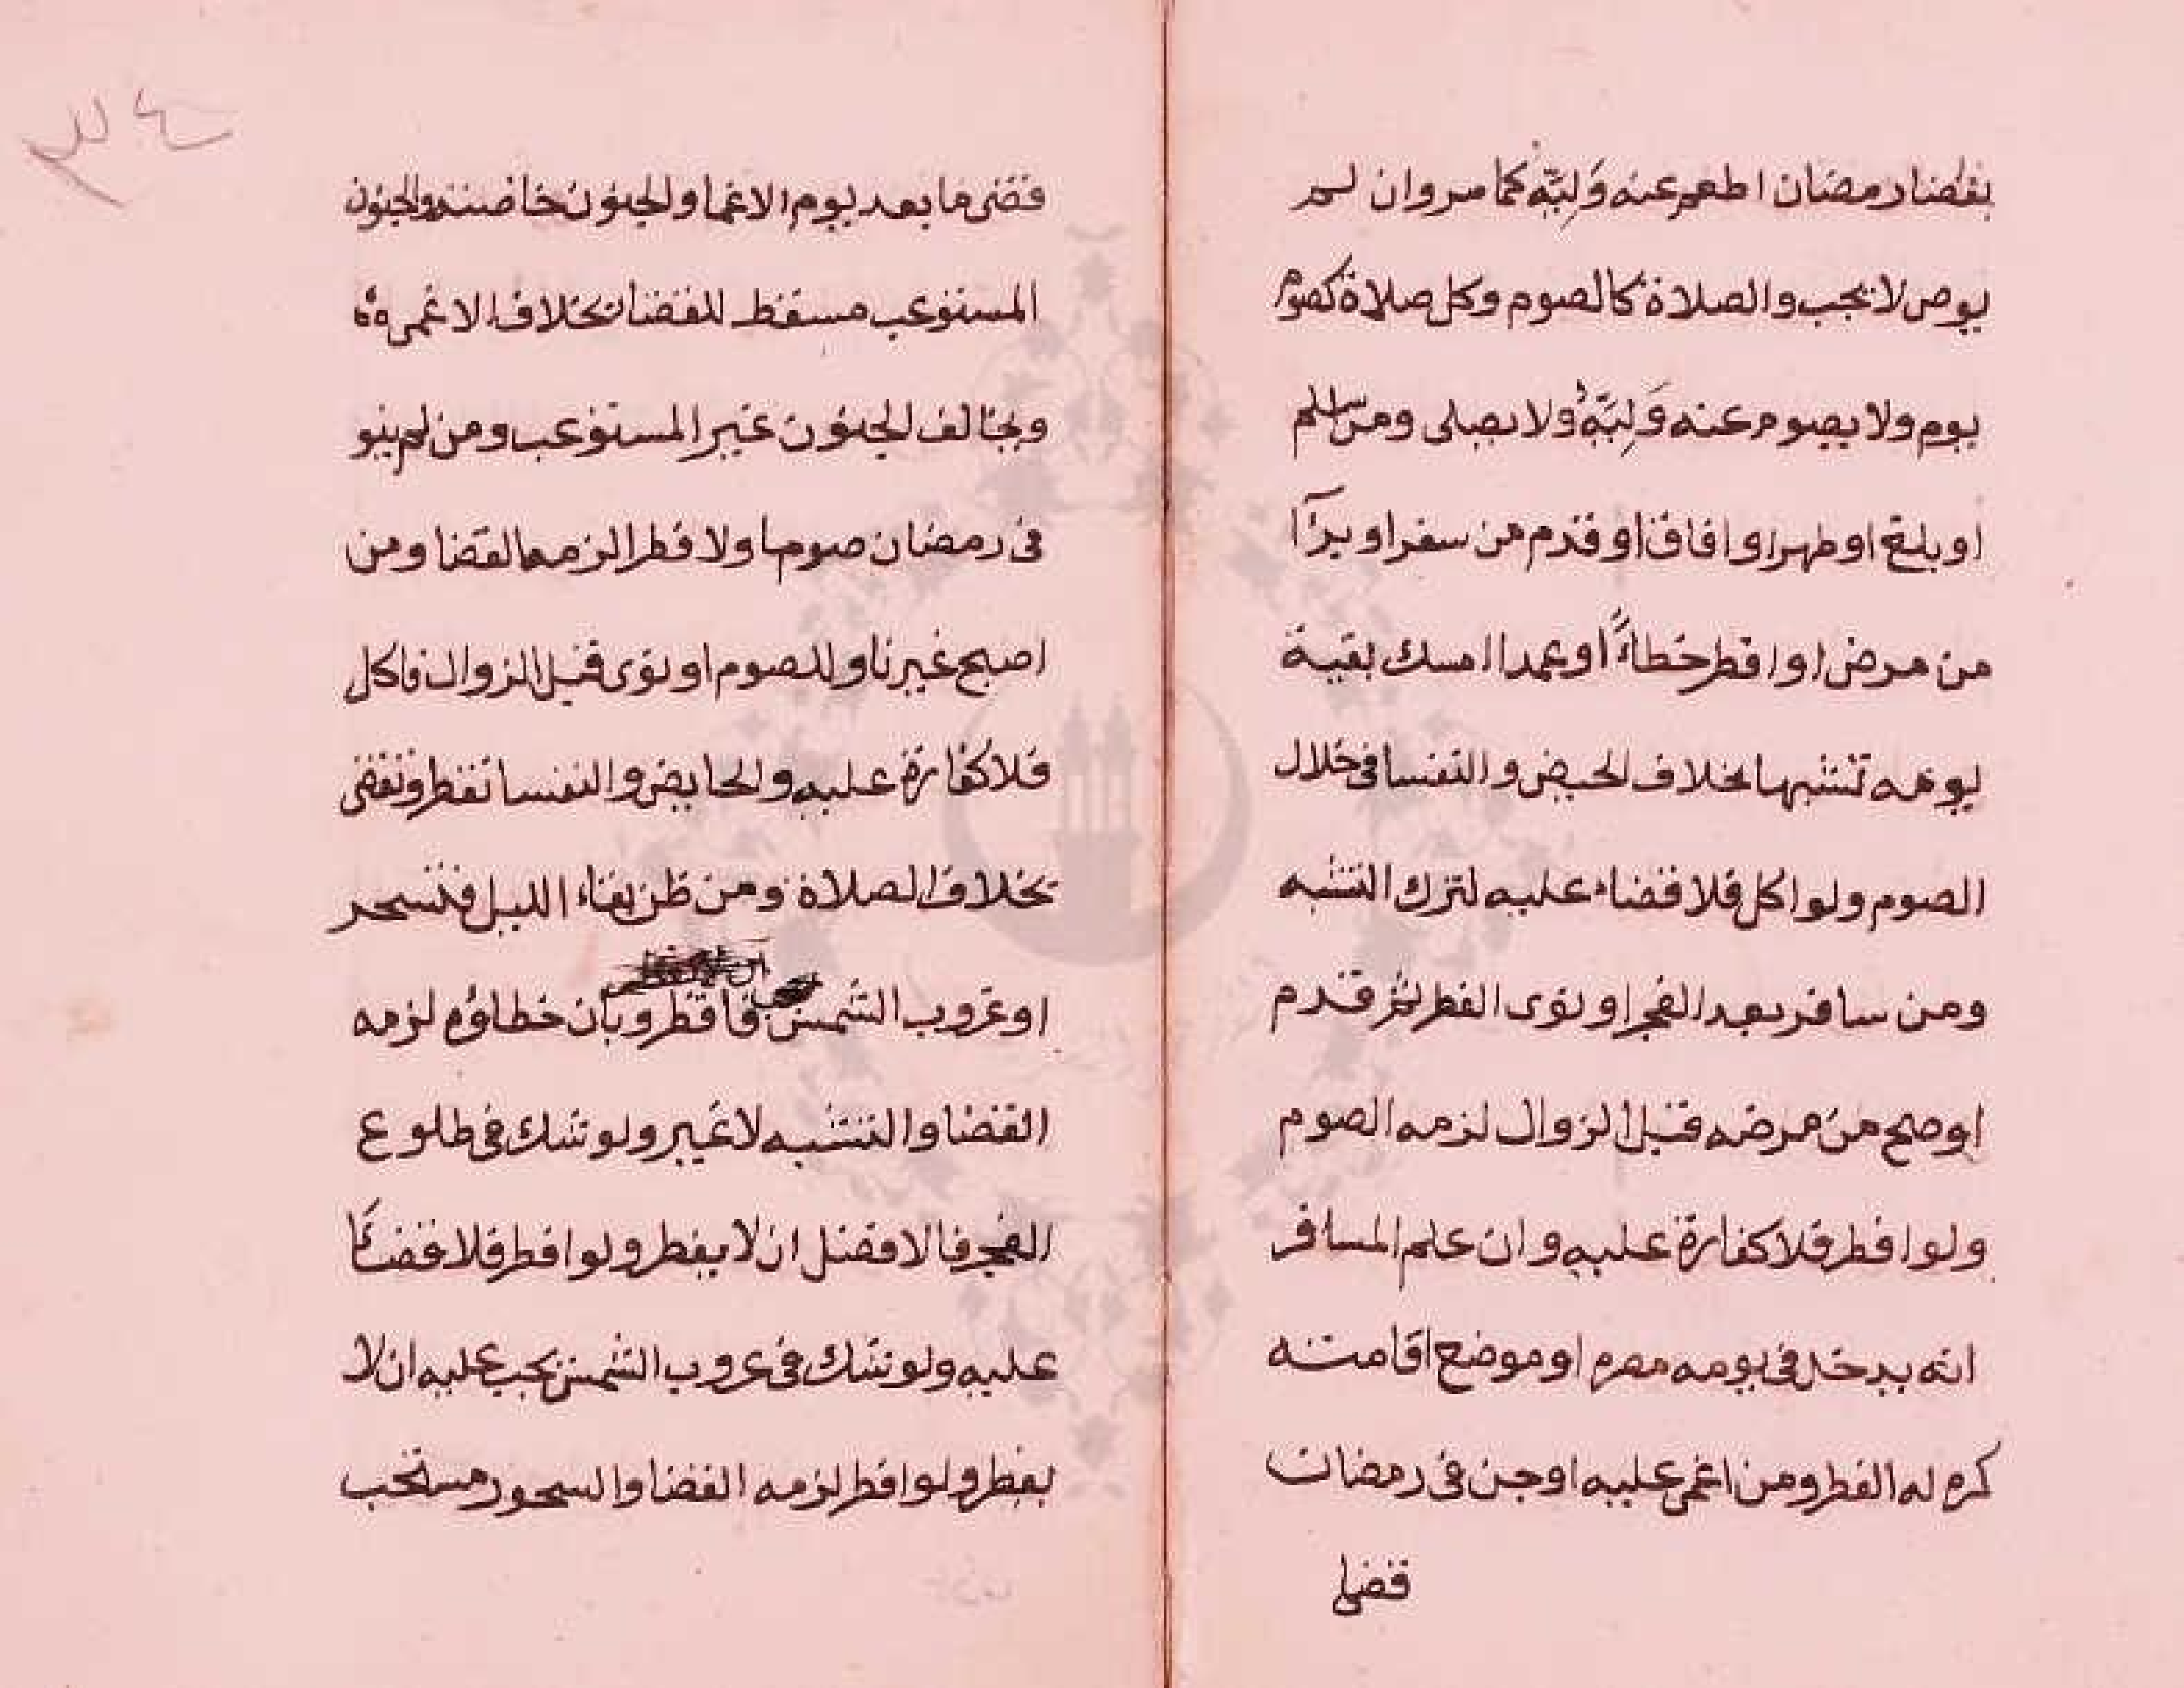 بقضا رمضان اطعم عنه وَلِيّه كما مر وان لم
يوص لا يجب والصلاة كالصوم وكل صلاة كصوم
يوم ولا يصوم عنه وَلِيّه ولا يصلى ومن اسلم
او بلغ او طهر او افاق او قدم من سفر او برأ
من مرض او افطر خطاءً او عمدا امسك بقية
يومه تشبها بخلاف الحيض والنفسا فى خلال
الصوم ولو اكل فلا قضاء عليه لترك التشبه
ومن سافر بعد الفجر او نوى الفطر ثم قدم
او صح من مرضه قبل الزوال لزمه الصوم
ولو افطر فلا كفارة عليه وان علم المسافر
انه يدخل فى يومه مصره او موضع اقامته
كره له الفطر ومن اغمى عليه او جن فى رمضان
قضى
قضى ما بعد يوم الاغما والجنون خاصته والجنون
المستوعب مسقط للقضا بخلاف الاغمى
ويخالف الجنون غير المستوعب ومن لم ينو
فى رمضان صوما ولا فطرا لزمه القضا ومن
اصبح غير ناو للصوم او نوى قبل الزوال فاكل
فلا كفارة عليه والحايض والنفسا تفطر وتقضى
بخلاف الصلاة ومن ظن بقاء الليل فتسحر
او غروب الشمس فافطر وبان خطاؤه لزمه
القضا والتشبه لا غير ولو شك فى طلوع
الفجر فالافضل ان لا يفطر ولو افطر فلا قضا
عليه ولو شك فى غروب الشمس يجب عليه ان لا
يفطر ولو افطر لزمه القضا والسحور مستحب
٣٤